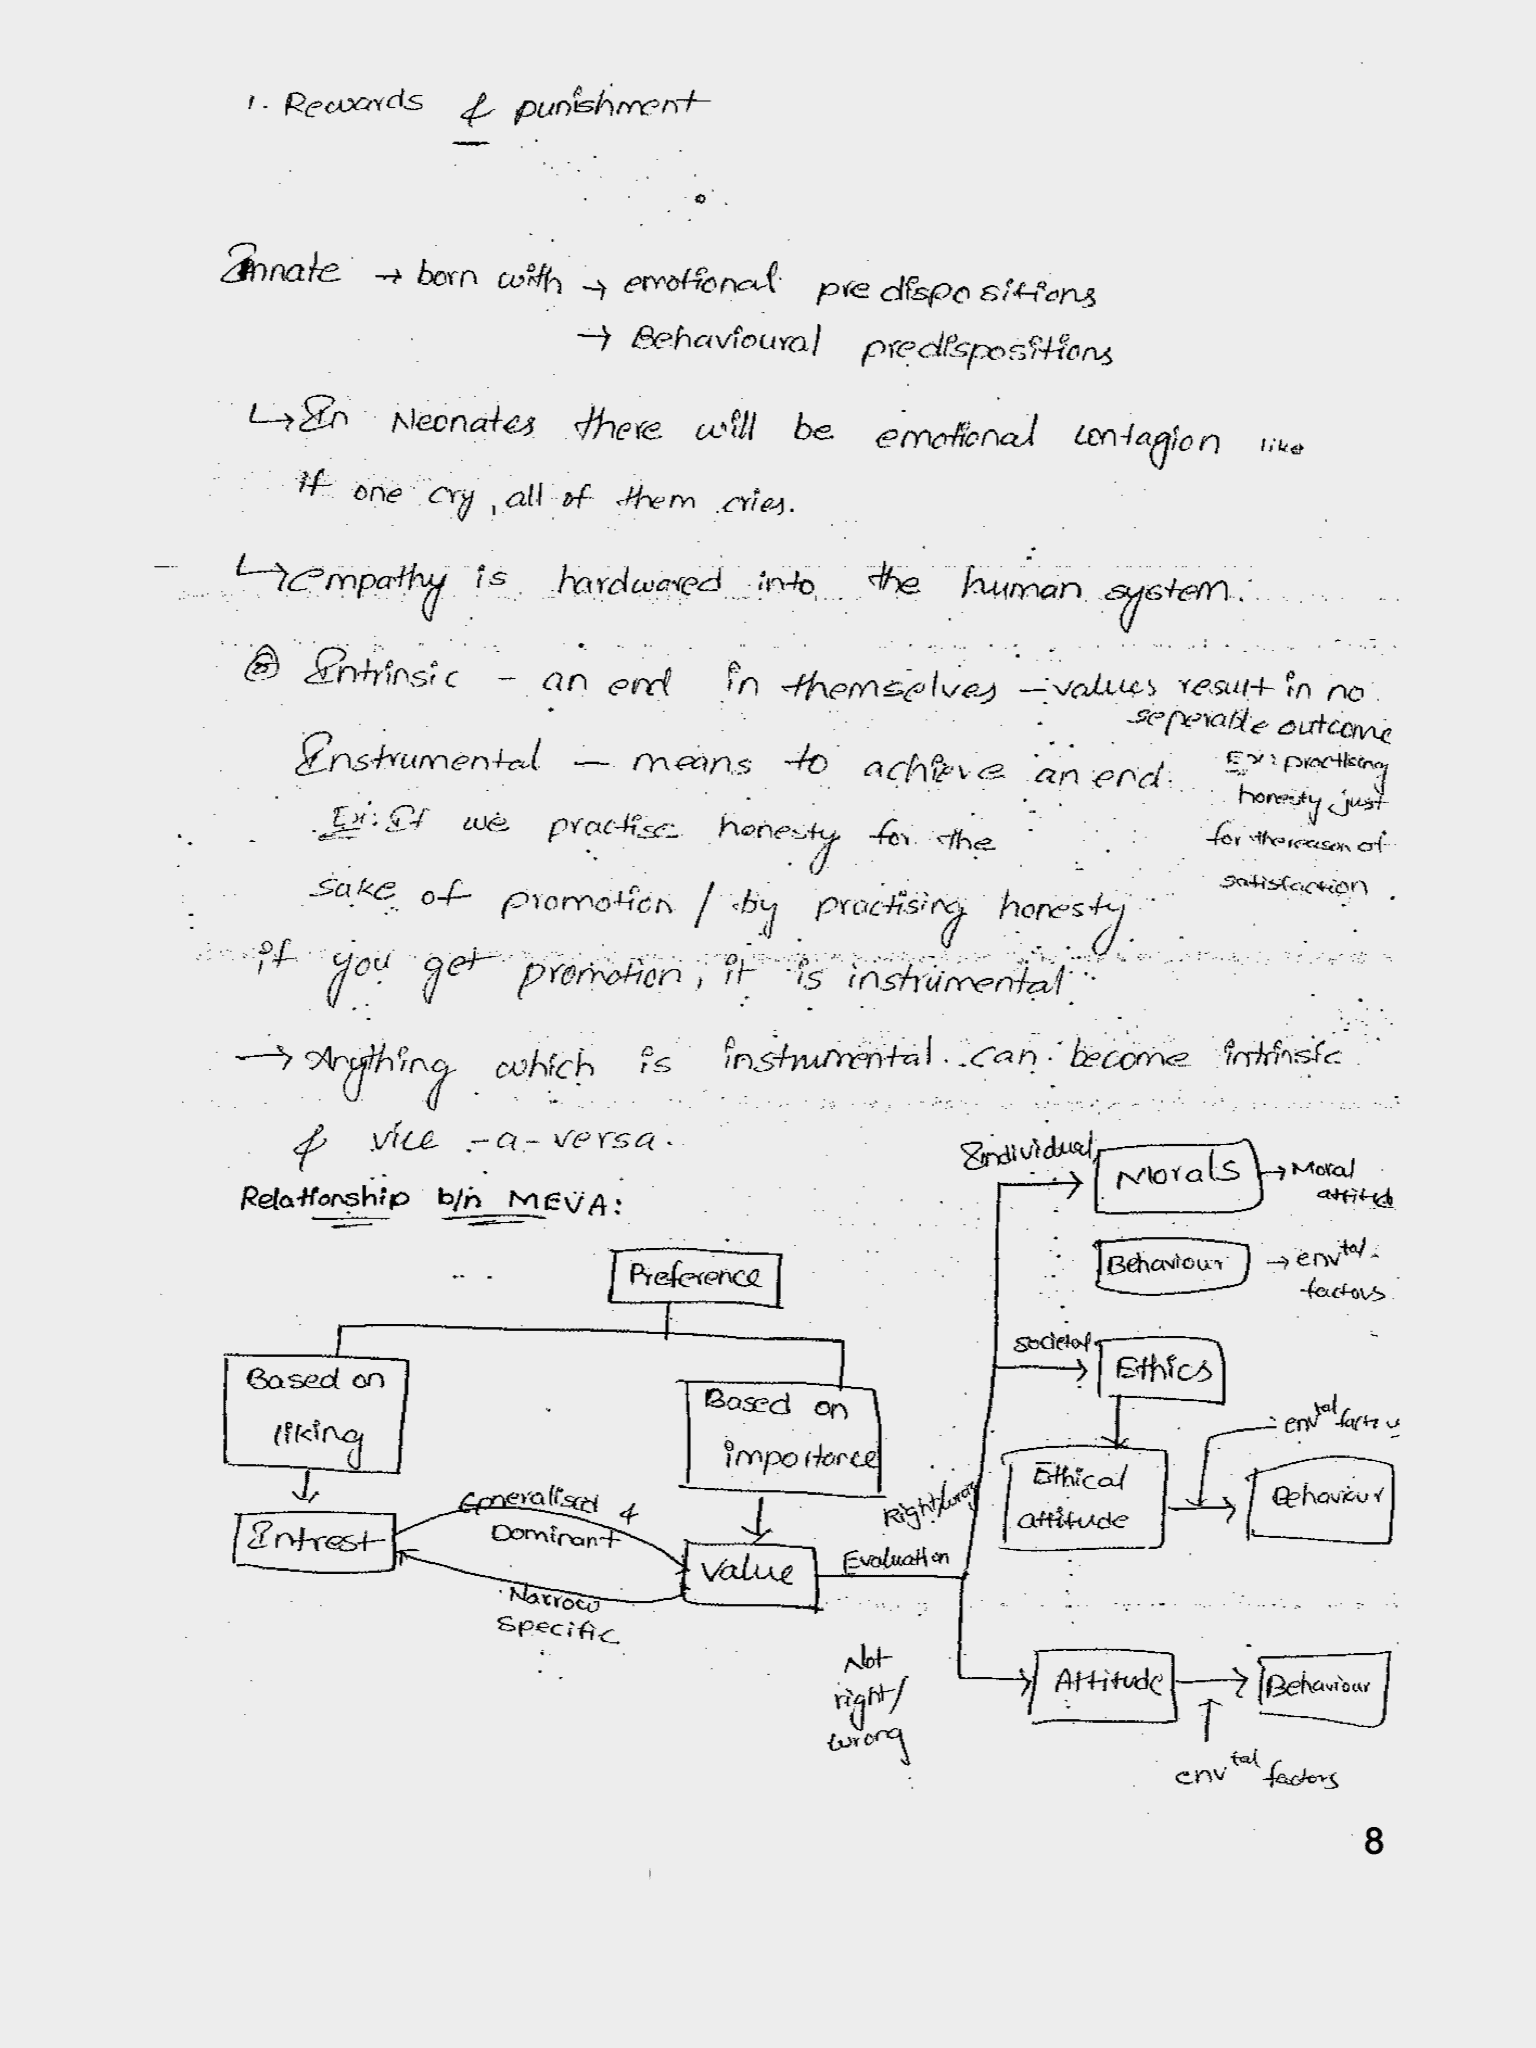 1. Rewards & punishment
Innate → born with → emotional predispositions
→ Behavioural predispositions
↳ In Neonates there will be emotional contagion like
if one cry, all of them cries.
↳ empathy is hardwared into the human system.
Intrinsic - an end in themselves - values result in no
seperable outcome
Instrumental - means to achieve an end.
Ex: practising
honesty just
for the reason of
satisfaction
Ex: If we practise honesty for the
sake of promotion / by practising honesty
if you get promotion, it is instrumental
→ Anything which is instrumental can become intrinsic
& vice -a- versa.
Relationship b/n MEVA:
Preference
Based on
liking
Based on
importance
Intrest
Generalised &
Dominant
Narrow
specific
Value
Evaluation
Right/wrong
Individual
Morals → Moral
attitude
Behaviour → env tal
factors
societal
Ethics
Ethical
attitude
env tal factors
Behaviour
Not
right/
wrong
Attitude
Behaviour
env tal factors
8